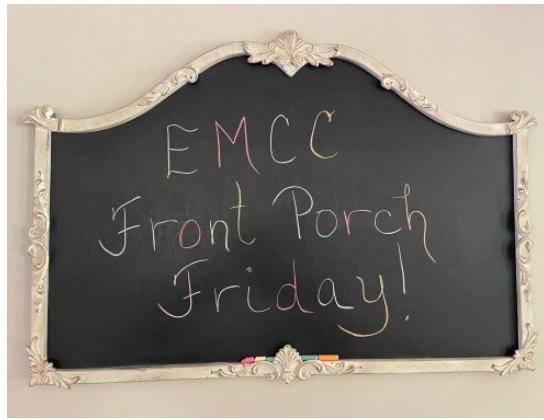 EMCC
Front Porch
Friday!